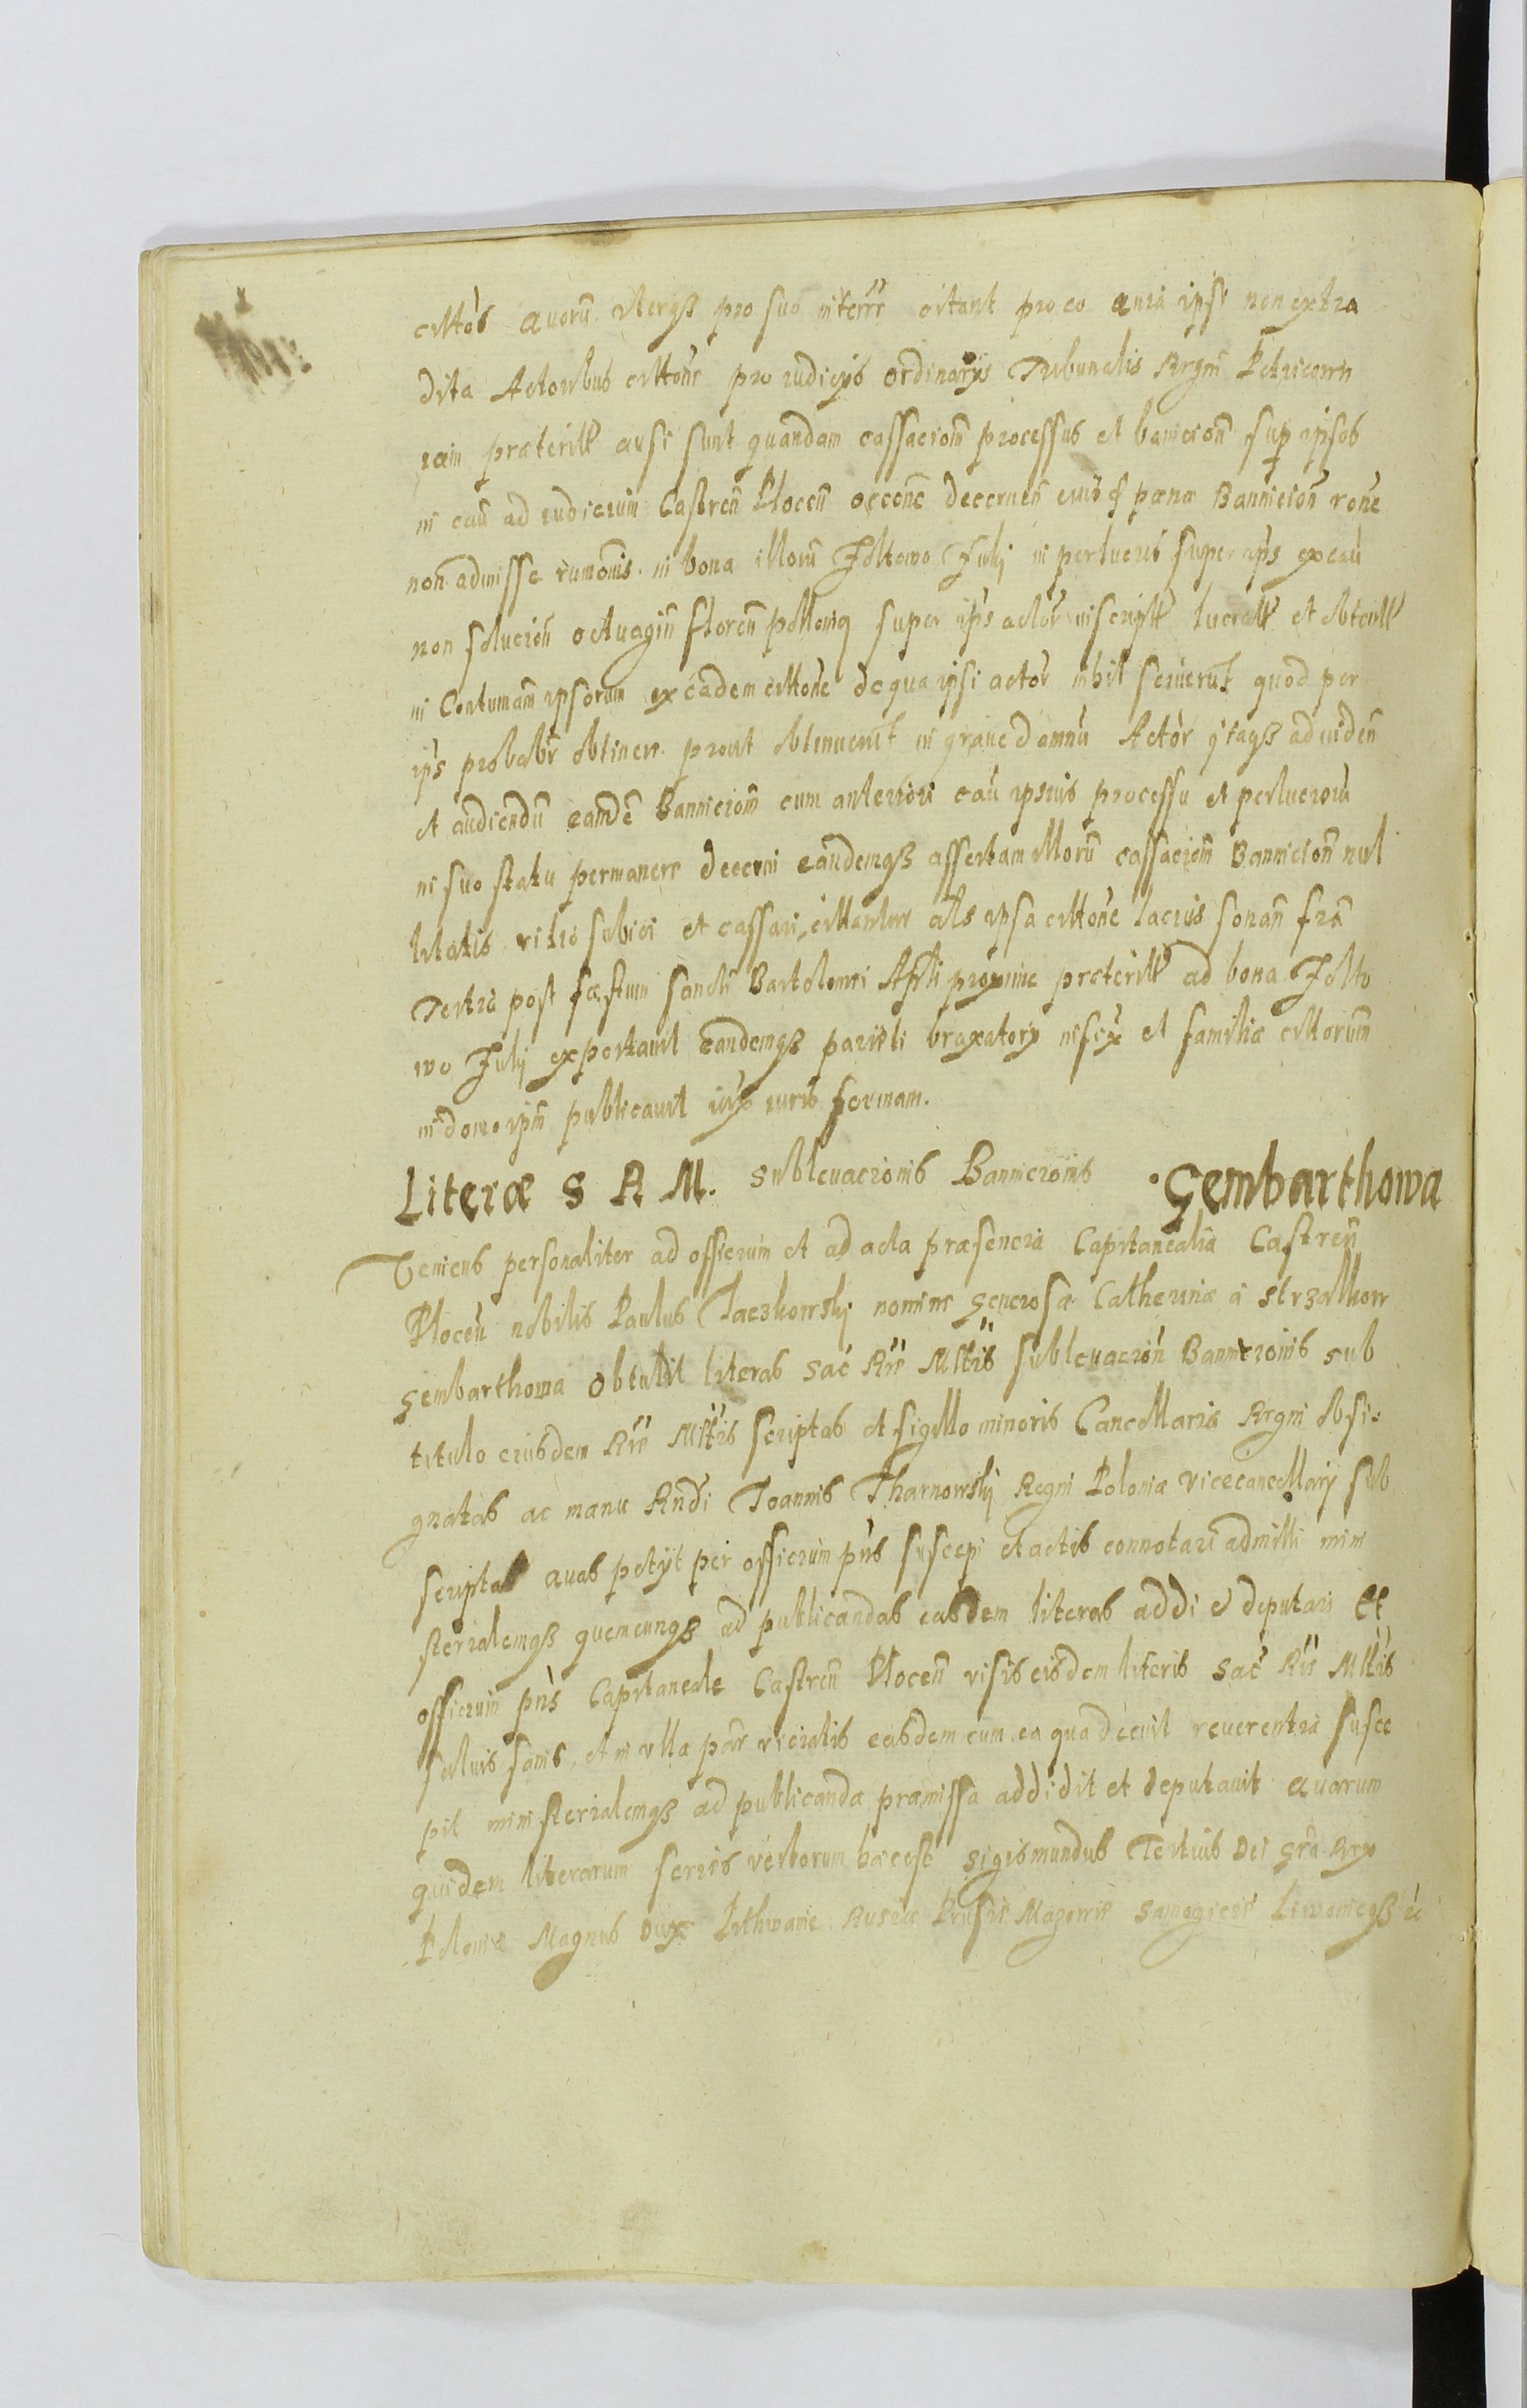 citatos quorum utrumqʒ pro suo interee citant pro eo quia ipsi non extra
dita Actoribus cittone pro iudicijs ordinarijs Tribunalis Regni Petricovien
iam praeteritt ausi sunt quandam cassacionem processus et banicion super ipsos
in cau ad iudicium Castren Plocen decernen eius poena Bannicion rone
non admisse rumonis in bona illorum Zoltowo Julij in perlucris super ips ex cau
non solucion octuagin floren pollonicq super ips actor inscript lucratt et obtentt
in Contumam ipsorum ex eadem cittone de qua ipsi actor nihil sciuerut quod per
ips probabr obtinere prout obtinuerut in graue damnu Actor itaqʒ ad viden
et audiendu eamde Bannicionem cum anteriori cau ipsius processu et perlucroru
in suo statu permanere decerni eandemqʒ assertam illorum cassacionem Bannicion nul
litatis vitio subici et cassari, cittantur als ipsa cittone lacius sonan fra
Tertia post foestum sancti Bartolomei Apli proxime praeteritt ad bona Zolto
wo Julij exportauit eandemqʒ braxatorij et familiae cittorum
in domo ipm publicauit iuxo iuris formam.
Literæ S R M. sublevacionis Bannicionis Gembarthowa
Veniens personaliter ad officium et ad acta praesencia Capitanealia Castren
Plocen nobilis Paulus Taczkowskij nomine generosa Catherinae a Strzalkow
gembarthowa obtulit literas Sac Rie Mttis sublevacion Bannicionis sub
titulo eiusdem Rie Mttis scriptas et sigillo minoris Cancellariae Regni obsi-
gnatas ac manu Rndi Joannis Tharnowskij Regni Poloniae vicecancellarij sub
scriptas quas petijt per officium pns suscepi et actis connotari admitti mini
sterialemqʒ quemcunqʒ ad publicandas easdem literas addi et deputari Et
officium pns Capitaneale Castren Plocen visis eisdem literis Sac Rie Mttis
saluis sanis, et in ulla par viciatis easdem cum ea qua decuit reuerentia susce
pit ministerialemqʒ ad publicanda praemissa addidit et deputauit quarum
quidem literarum series verborum haec est Sigismundus Tertius Dei gra Rex
Poloniae Magnus Dux Lithwanie Russie Prussie Mazowie Samogicie Liwonieqʒ zc